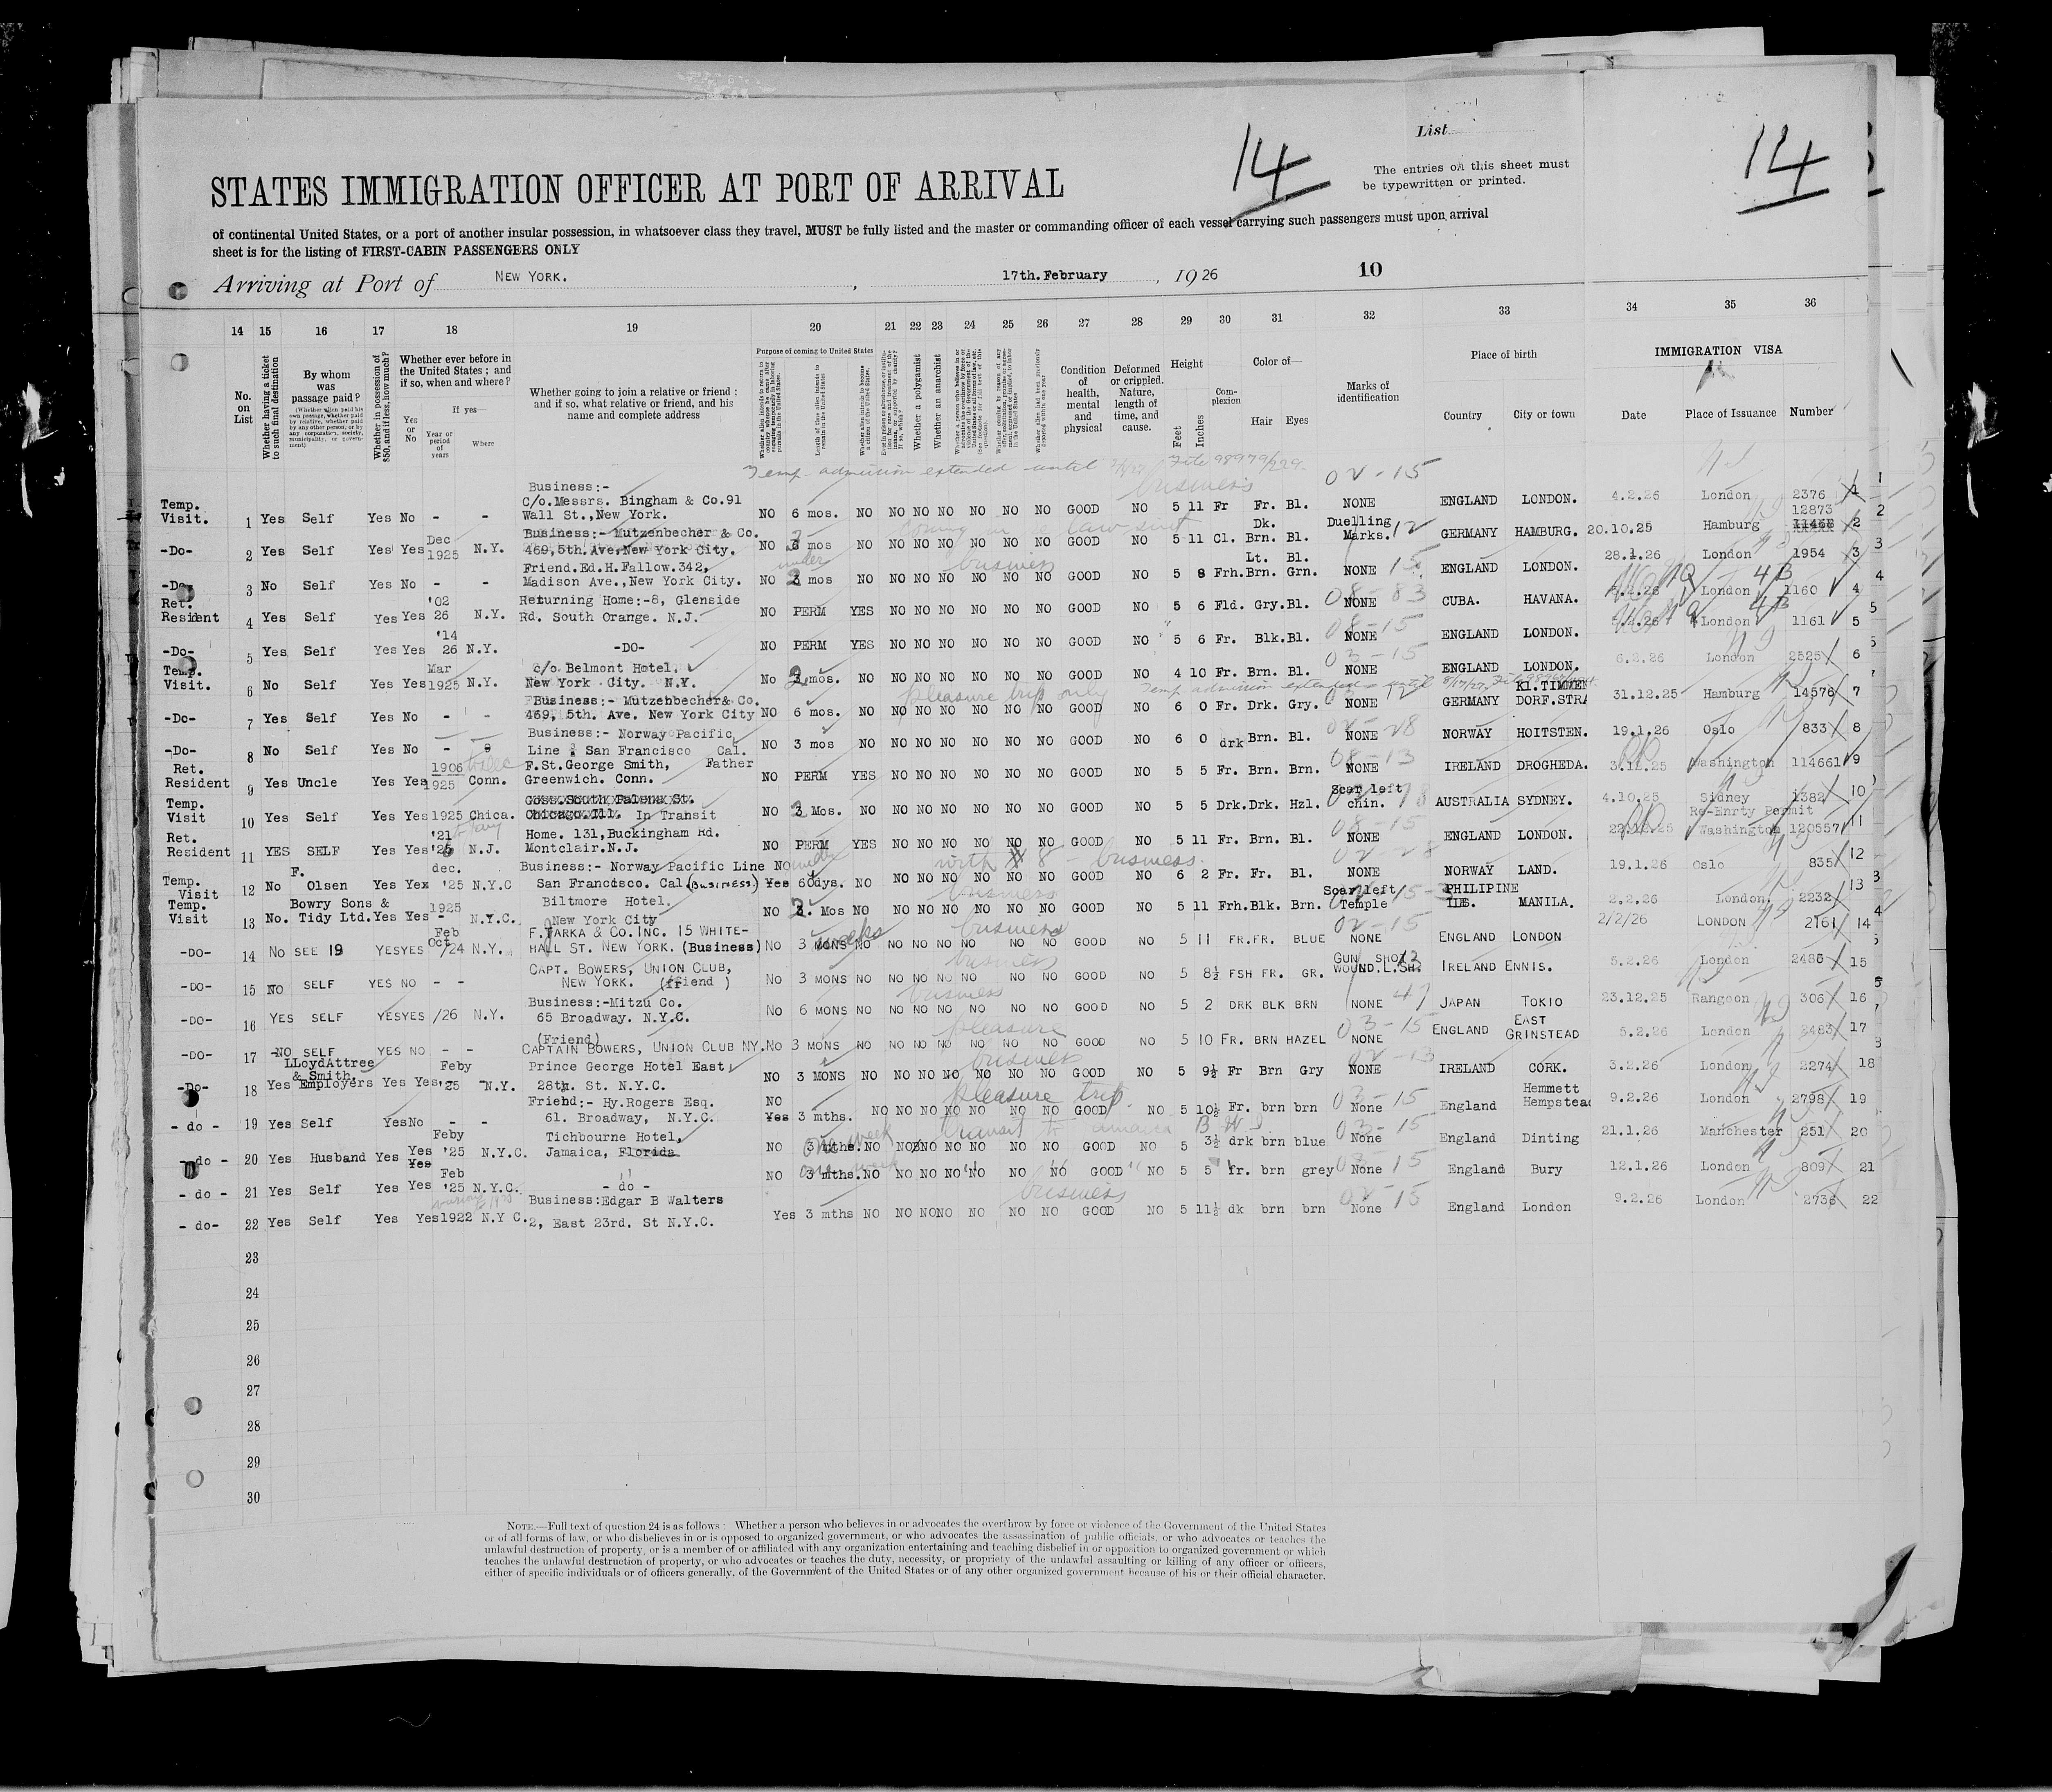 List
14
14
The entries on this sheet must
be typewritten or printed.
STATES IMMIGRATION OFFICER AT PORT OF ARRIVAL
of continental United States, or a port of another insular possession, in whatsoever class they travel, MUST be fully listed and the master or commanding officer of each vessel carrying such passengers must upon arrival
sheet is for the listing of FIRST-CABIN PASSENGERS ONLY
Arriving at Port of NEW YORK. , 17th. February , 1926 10
14 15 16 17 18 19 20 21 22 23 24 25 26 27 28 29 30 31 32 33 34 35 36
No. on List
Whether having a ticket to such final destination
By whom was passage paid?
Whether in possession of $50, and if less, how much?
Whether ever before in the United States; and if so, when and where?
Yes or No
If yes—
Year or period of years
Where
Whether going to join a relative or friend; and if so, what relative or friend, and his name and complete address
Purpose of coming to United States
Whether a polygamist
Whether an anarchist
Condition of health, mental and physical
Deformed or crippled. Nature, length of time, and cause.
Height
Feet Inches
Complexion
Color of—
Hair Eyes
Marks of identification
Place of birth
Country City or town
IMMIGRATION VISA
Date Place of Issuance Number
Temp. admission extended until File 98979/229
Temp. Visit. 1 Yes Self Yes No - - Business:- C/o.Messrs. Bingham & Co.91 Wall St.,New York. NO 6 mos. NO NO NO NO NO NO NO GOOD NO 5 11 Fr Fr. Bl. NONE ENGLAND LONDON. 4.2.26 London 2376 1
business 02-15
-Do- 2 Yes Self Yes Yes Dec 1925 N.Y. Business:- Mutzenbecher & Co. 469,5th.Ave,New York City. NO 3 mos NO NO NO NO NO NO NO GOOD NO 5 11 Cl. Dk. Brn. Bl. Duelling Marks. GERMANY HAMBURG. 20.10.25 Hamburg 12873 2
-Do- 3 No Self Yes No - - Friend.Ed.H.Fallow.342, Madison Ave.,New York City. NO 3 mos NO NO NO NO NO NO NO GOOD NO 5 8 Frh. Lt. Brn. Bl. Grn. NONE ENGLAND LONDON. 28.1.26 London 1954 3
business 15
Ret. Resient 4 Yes Self Yes Yes '02 26 N.Y. Returning Home:-8, Glenside Rd. South Orange. N.J. NO PERM YES NO NO NO NO NO NO GOOD NO 5 6 Fld. Gry. Bl. NONE CUBA. HAVANA. London 1160 4
08-83 4B
-Do- 5 Yes Self Yes Yes '14 26 N.Y. -DO- NO PERM YES NO NO NO NO NO NO GOOD NO 5 6 Fr. Blk. Bl. NONE ENGLAND LONDON. London 1161 5
08-15 4B
Temp. Visit. 6 No Self Yes Yes Mar 1925 N.Y. c/o Belmont Hotel. New York City. N.Y. No 3 mos. NO NO NO NO NO NO NO GOOD NO 4 10 Fr. Brn. Bl. NONE ENGLAND LONDON. 6.2.26 London 2525 6
pleasure trip only 03-15
Temp admission extended until 8/17/27
-Do- 7 Yes Self Yes No - - Business:- Mutzenbecher& Co. 469, 5th. Ave. New York City NO 6 mos. NO NO NO NO NO NO NO GOOD NO 6 0 Fr. Drk. Gry. NONE GERMANY Kl.TIMMEN DORF.STRA 31.12.25 Hamburg 14576 7
-Do- 8 No Self Yes No - - Business:- Norway Pacific Line San Francisco Cal. NO 3 mos NO NO NO NO NO NO NO GOOD NO 6 0 drk Brn. Bl. NONE NORWAY HOITSTEN. 19.1.26 Oslo 833 8
02-28
Ret. Resident 9 Yes Uncle Yes Yes 1906 1925 Conn. F.St.George Smith, Father Greenwich. Conn. NO PERM YES NO NO NO NO NO NO GOOD NO 5 5 Fr. Brn. Brn. NONE IRELAND DROGHEDA. Washington 114661 9
08-13
Temp. Visit 10 Yes Self Yes Yes 1925 Chica. In Transit NO 3 Mos. NO NO NO NO NO NO NO GOOD NO 5 5 Drk. Drk. Hzl. Scar left chin. AUSTRALIA SYDNEY. 4.10.25 Sidney 1382 10
Ret. Resident 11 YES SELF Yes Yes '21 N.J. Home. 131,Buckingham Rd. Montclair.N.J. NO PERM YES NO NO NO NO NO NO GOOD NO 5 11 Fr. Brn. Bl. NONE ENGLAND LONDON. Re-Enrty Permit Washington 120557 11
08-15
with # 8 - business
Temp. Visit 12 No F. Olsen Yes Yex dec. '25 N.Y.C Business:- Norway Pacific Line San Francisco. Cal.(BUSINESS.) No Yes 60dys. NO NO NO NO NO NO NO GOOD NO 6 2 Fr. Fr. Bl. NONE NORWAY LAND. 19.1.26 Oslo 835 12
02-28
Temp. Visit 13 No. Bowry Sons & Tidy Ltd. Yes Yes 1925 - N.Y.C. Biltmore Hotel. New York City NO Mos NO NO NO NO NO NO NO GOOD NO 5 11 Frh. Blk. Brn. Scar left Temple PHILIPINE ILS. MANILA. 2.2.26 London. 2232 13
business
-DO- 14 NO SEE 19 YES YES Feb Oct /24 N.Y. F.TARKA & CO.INC. 15 WHITE-HALL ST. NEW YORK. (Business) NO 3 MONS NO NO NO NO NO NO NO GOOD NO 5 11 FR. FR. BLUE NONE ENGLAND LONDON 2/2/26 LONDON 2161 14
weeks business 02-15
-DO- 15 NO SELF YES NO - - CAPT. BOWERS, UNION CLUB, NEW YORK. (ffiend ) NO 3 MONS NO NO NO NO NO NO NO GOOD NO 5 8½ FSH FR. GR. GUN SHOT WOUND.L.SH. IRELAND ENNIS. 5.2.26 London 2486 15
business
-DO- 16 YES SELF YES YES /26 N.Y. Business:-Mitzu Co. 65 Broadway. N.Y.C. No 6 MONS NO NO NO NO NO NO NO GOOD NO 5 2 DRK BLK BRN NONE JAPAN TOKIO 23.12.25 Rangoon 306 16
business 47
-DO- 17 NO SELF YES NO - - (Friend) CAPTAIN BOWERS, UNION CLUB NY. NO 3 MONS NO NO NO NO NO NO NO GOOD NO 5 10 FR. BRN HAZEL NONE ENGLAND EAST GRINSTEAD 5.2.26 London 2483 17
pleasure 03-15
-Do- 18 Yes LLoydAttree & Smith. Employers Yes Yes Feby '25 N.Y. Prince George Hotel East 28th. St. N.Y.C. NO 3 MONS NO NO NO NO NO NO NO GOOD NO 5 9½ Fr Brn Gry NONE IRELAND CORK. 3.2.26 London 2274 18
business 02-13
- do - 19 Yes Self Yes No - - Friend:- Hy.Rogers Esq. 61. Broadway, N.Y.C. NO Yes 3 mths. NO NO NO NO NO NO NO GOOD NO 5 10½ Fr. brn brn None England Hemmett Hempstead 9.2.26 London 2798 19
pleasure trip 03-15
- do - 20 Yes Husband Yes Yes Yes Feby '25 N.Y.C. Tichbourne Hotel, Jamaica, Florida NO 3 mths. NO NO NO NO NO NO NO GOOD NO 5 3½ drk brn blue None England Dinting 21.1.26 Manchester 251 20
one week transit to Jamaica B W I 03-15
- do - 21 Yes Self Yes Yes Feb '25 N.Y.C. - do - NO 3 mths. NO NO NO NO NO NO NO GOOD NO 5 5 fr. brn grey None England Bury 12.1.26 London 809 21
one week 15
- do- 22 Yes Self Yes Yes 1922 N.Y C. Business:Edgar B Walters 2, East 23rd. St N.Y.C. Yes 3 mths NO NO NO NO NO NO NO GOOD NO 5 11½ dk brn brn None England London 9.2.26 London 2736 22
business 02-15
23
24
25
26
27
28
29
30
NOTE.—Full text of question 24 is as follows: Whether a person who believes in or advocates the overthrow by force or violence of the Government of the United States
or of all forms of law, or who disbelieves in or is opposed to organized government, or who advocates the assassination of public officials, or who advocates or teaches the
unlawful destruction of property, or is a member of or affiliated with any organization entertaining and teaching disbelief in or opposition to organized government or which
teaches the unlawful destruction of property, or who advocates or teaches the duty, necessity, or propriety of the unlawful assaulting or killing of any officer or officers,
either of specific individuals or of officers generally, of the Government of the United States or of any other organized government because of his or their official character.